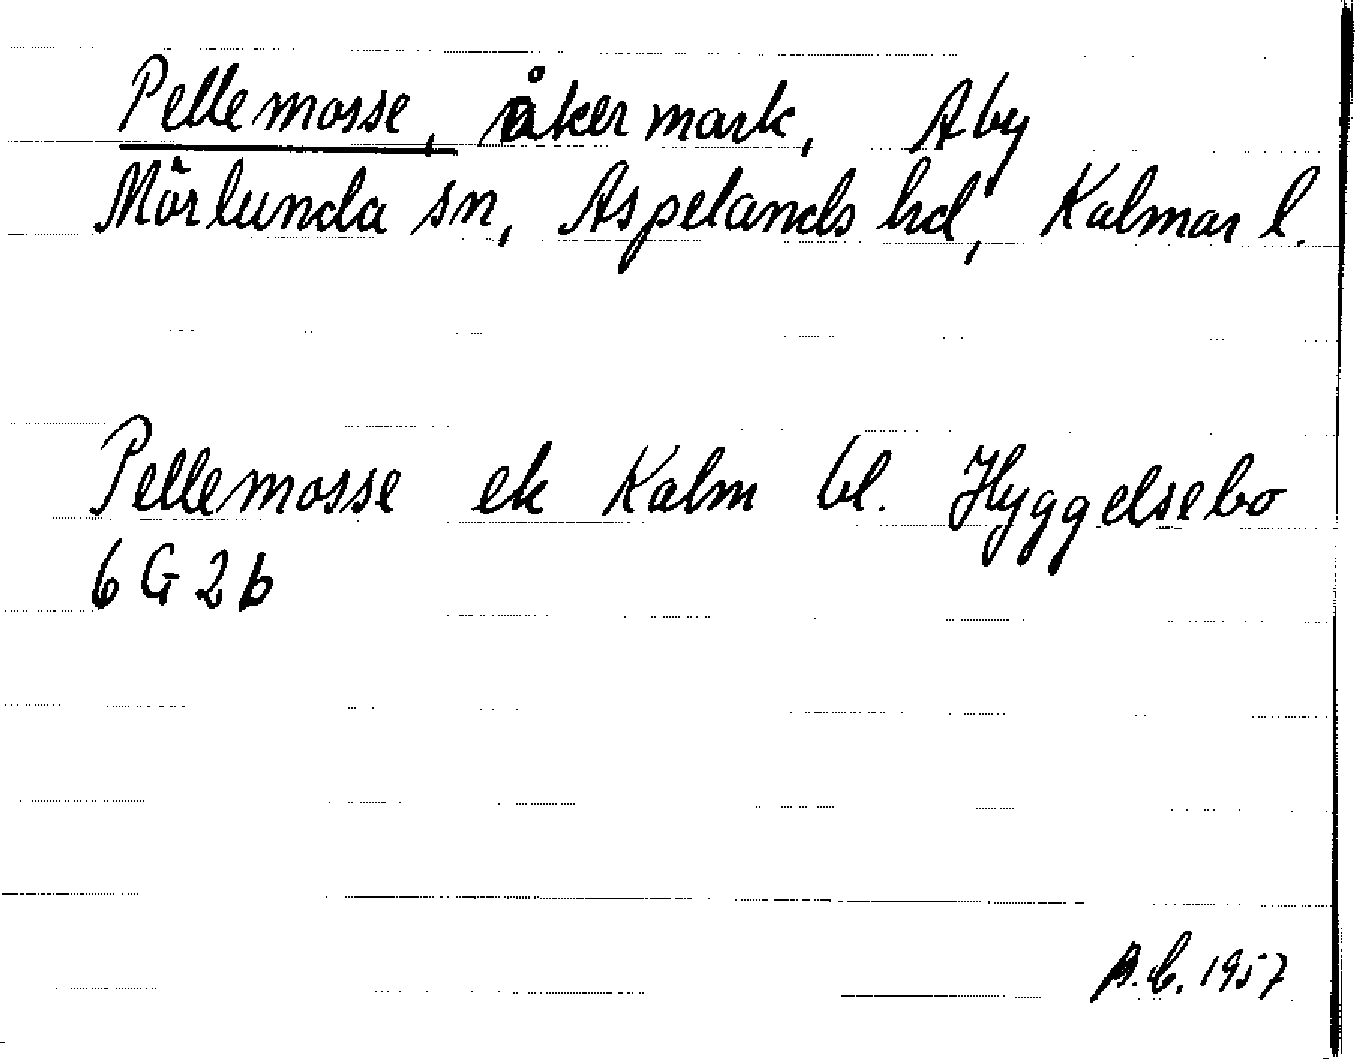 Pellemosse, åkermark, Aby
Mörlunda sn, Aspelands hd, Kalmar l.
Pellemosse ek Kalm bl. Hyggelsebo
6 G 2 b
A.C. 1957